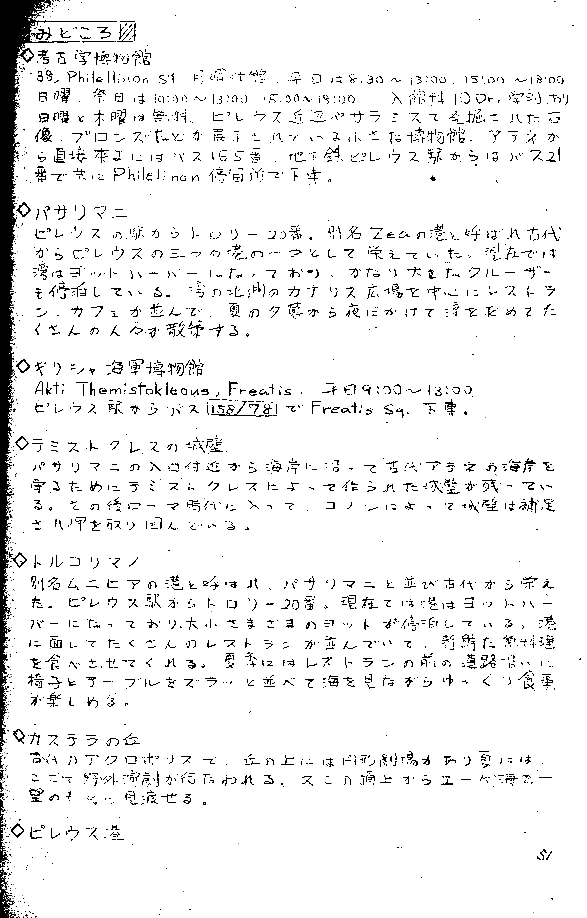 みどころ
◇考古学博物館
38, Philellinon sq. 月曜休館、平日は8:30～13:00、15:00～18:00
日曜、祭日は10:00～13:00 15:00～18:00 入館料10Dr. 学割あり
日曜と木曜は無料。ピレウス近辺やサラミスで発掘された石
像、ブロンズなどが展示されている小さな博物館。アテネか
ら直接来るにはバス165番、地下鉄ピレウス駅からはバス21
番で共にPhilelinon停留所で下車。
◇パサリマニ
ピレウスの駅からトロリー20番。別名Zeaの港と呼ばれ古代
からピレウスの三つの港の一つとして栄えていた。現在では
湾はヨットハーバーになっており、かなり大きなクルーザー
も停泊している。湾の北側のカナリス広場を中心にレストラ
ン、カフェが並んで、夏の夕暮から夜にかけて涼をもとめてた
くさんの人々が散策する。
◇ギリシャ海軍博物館
Akti Themistokleous, Freatis. 平日9:00～13:00
ピレウス駅からバス158/78でFreatis Sq. 下車。
◇テミストクレスの城壁
パサリマニの入口付近から海岸に沿って古代アテネの海岸を
守るためにテミストクレスによって作られた城壁が残ってい
る。その後ローマ時代に入って、コノンによって城壁は補足
され岬を取り囲んでいる。
◇トルコリマノ
別名ムニヒアの港と呼ばれ、パサリマニと並び古代から栄え
た。ピレウス駅からトロリー20番。現在では港はヨットハー
バーになっており大小さまざまのヨットが停泊している。港
に面してたくさんのレストランが並んでいて、新鮮な魚料理
を食べさせてくれる。夏季にはレストランの前の道路沿いに
椅子とテーブルをズラッと並べて海を見ながらゆっくり食事
が楽しめる。
◇カステラの丘
古代のアクロポリスで、丘の上には円形劇場があり夏には、
ここで野外演劇が行なわれる。又この頂上からエーゲ海が一
望のもとに見渡せる。
◇ピレウス港
51